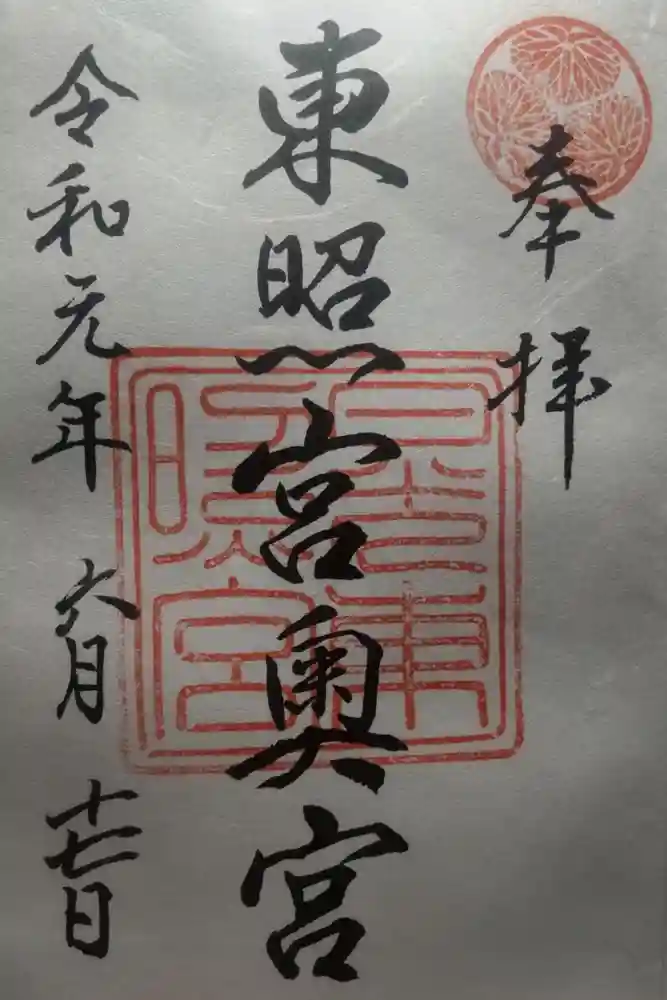 奉拝
東照宮奥宮
日光東
照宮
令和元年 六月 十七日